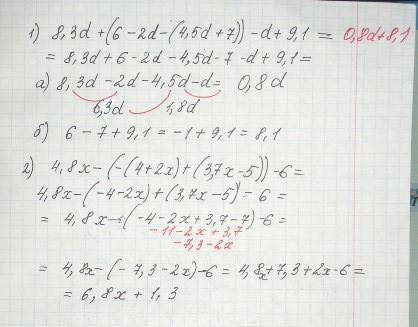 1) 8,3d + (6 - 2d - (4,5d + 7)) - d + 9,1 = 0,8d + 8,1
= 8,3d + 6 - 2d - 4,5d - 7 - d + 9,1 =
а) 8,3d - 2d - 4,5d - d = 0,8d
6,3d 1,8d
б) 6 - 7 + 9,1 = -1 + 9,1 = 8,1
2) 4,8x - (-(4+2x) + (3,7x - 5)) - 6 =
4,8x - (-4-2x) + (3,7x - 5) - 6 =
= 4,8x - (-4 - 2x + 3,7 - 7) - 6 =
-11 - 2x + 3,7
-7,3 - 2x
= 4,8x - (-7,3 - 2x) - 6 = 4,8x + 7,3 + 2x - 6 =
= 6,8x + 1,3